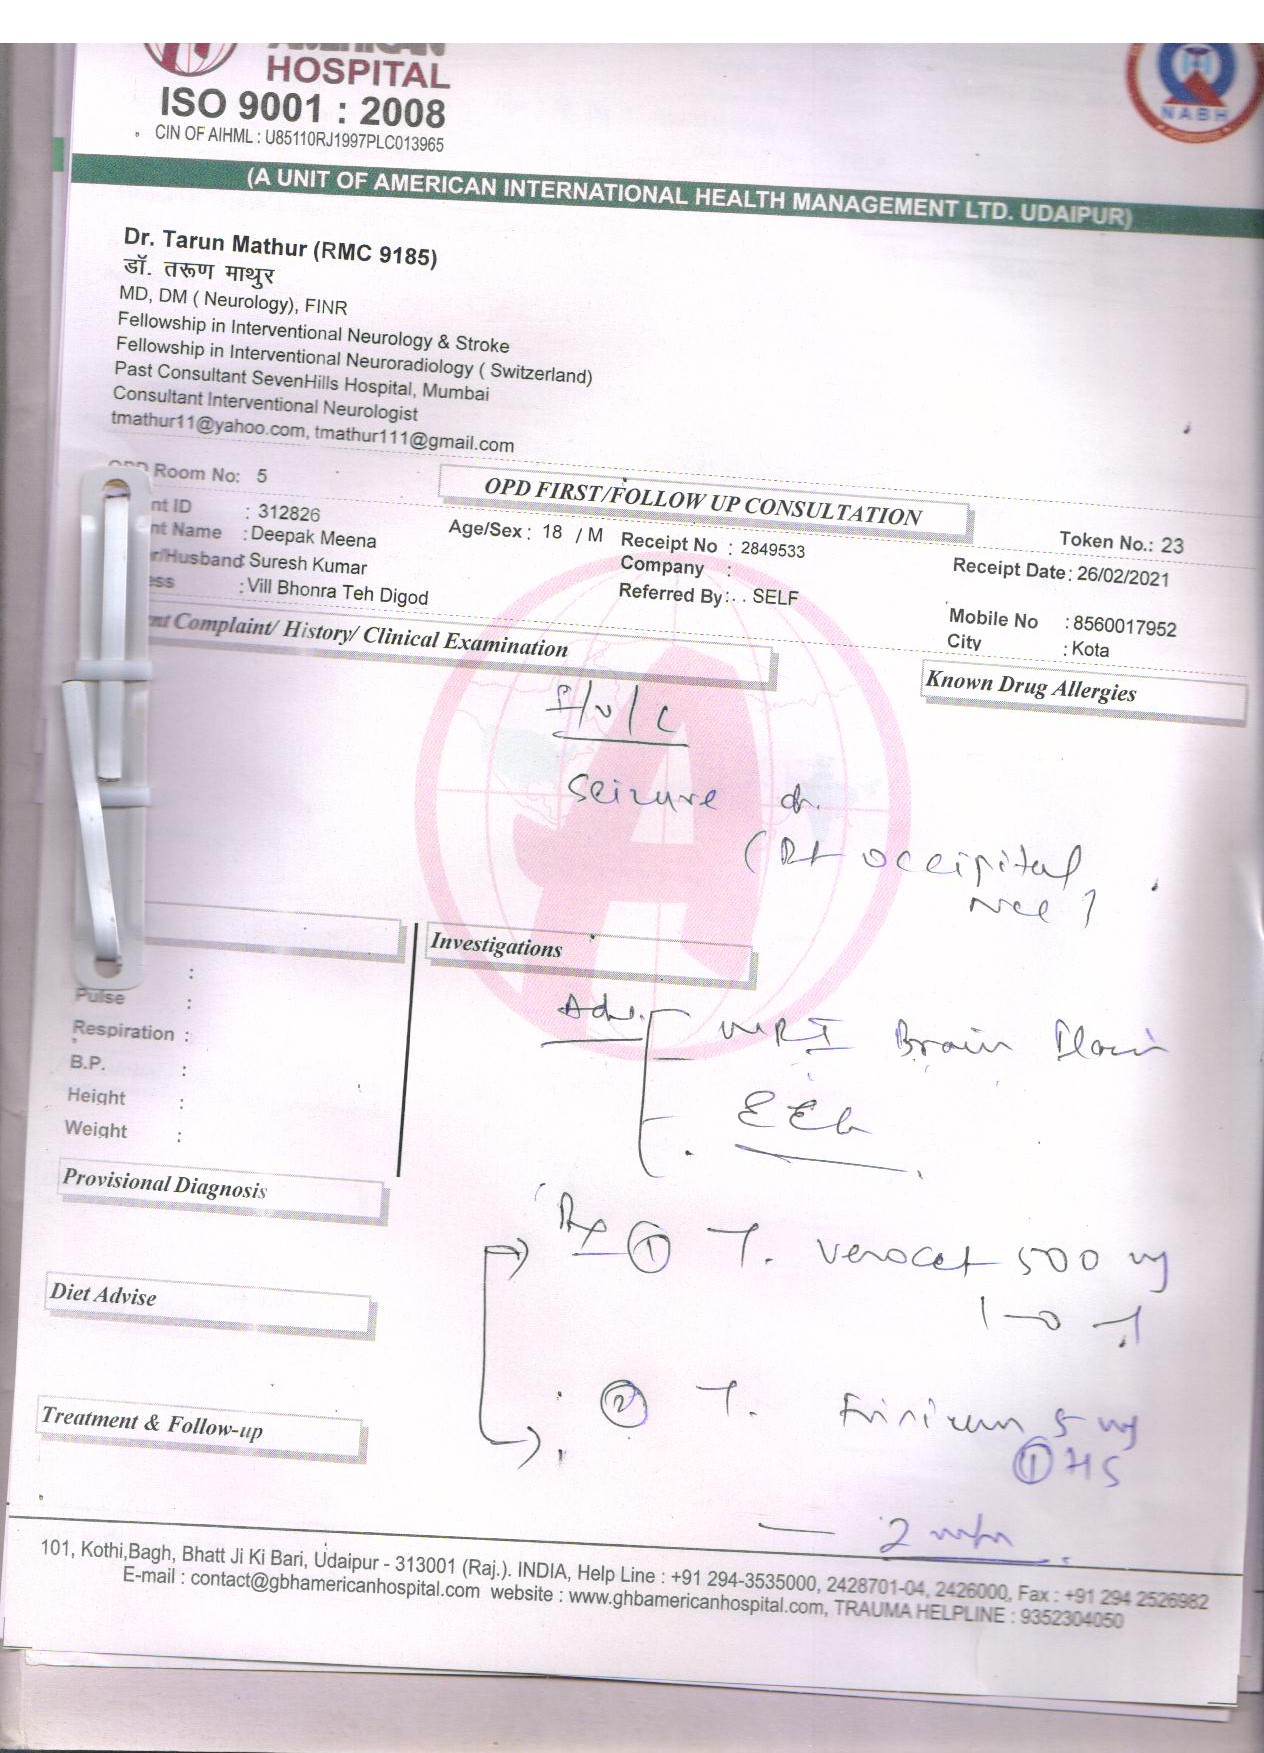 AMERICAN
HOSPITAL
ISO 9001 : 2008
CIN OF AIHML : U85110RJ1997PLC013965
NABH
(A UNIT OF AMERICAN INTERNATIONAL HEALTH MANAGEMENT LTD. UDAIPUR)
Dr. Tarun Mathur (RMC 9185)
डॉ. तरूण माथुर
MD, DM ( Neurology), FINR
Fellowship in Interventional Neurology & Stroke
Fellowship in Interventional Neuroradiology ( Switzerland)
Past Consultant SevenHills Hospital, Mumbai
Consultant Interventional Neurologist
tmathur11@yahoo.com, tmathur111@gmail.com
OPD Room No: 5
OPD FIRST/FOLLOW UP CONSULTATION
Token No.: 23
nt ID : 312826
nt Name : Deepak Meena Age/Sex : 18 / M Receipt No : 2849533 Receipt Date: 26/02/2021
r/Husband: Suresh Kumar Company :
ess : Vill Bhonra Teh Digod Referred By:.. SELF Mobile No : 8560017952
City : Kota
nt Complaint/ History/ Clinical Examination
Known Drug Allergies
Seizure
(Rt occipital
Investigations
Adv. MRI Brain Plain
EEG
Pulse :
Respiration :
B.P. :
Height :
Weight :
Provisional Diagnosis
Rx ① T. 500 mg
1-0-1
Diet Advise
② T. 5 mg
① HS
Treatment & Follow-up
2
101, Kothi,Bagh, Bhatt Ji Ki Bari, Udaipur - 313001 (Raj.). INDIA, Help Line : +91 294-3535000, 2428701-04, 2426000, Fax : +91 294 2526982
E-mail : contact@gbhamericanhospital.com website : www.ghbamericanhospital.com, TRAUMA HELPLINE : 9352304050